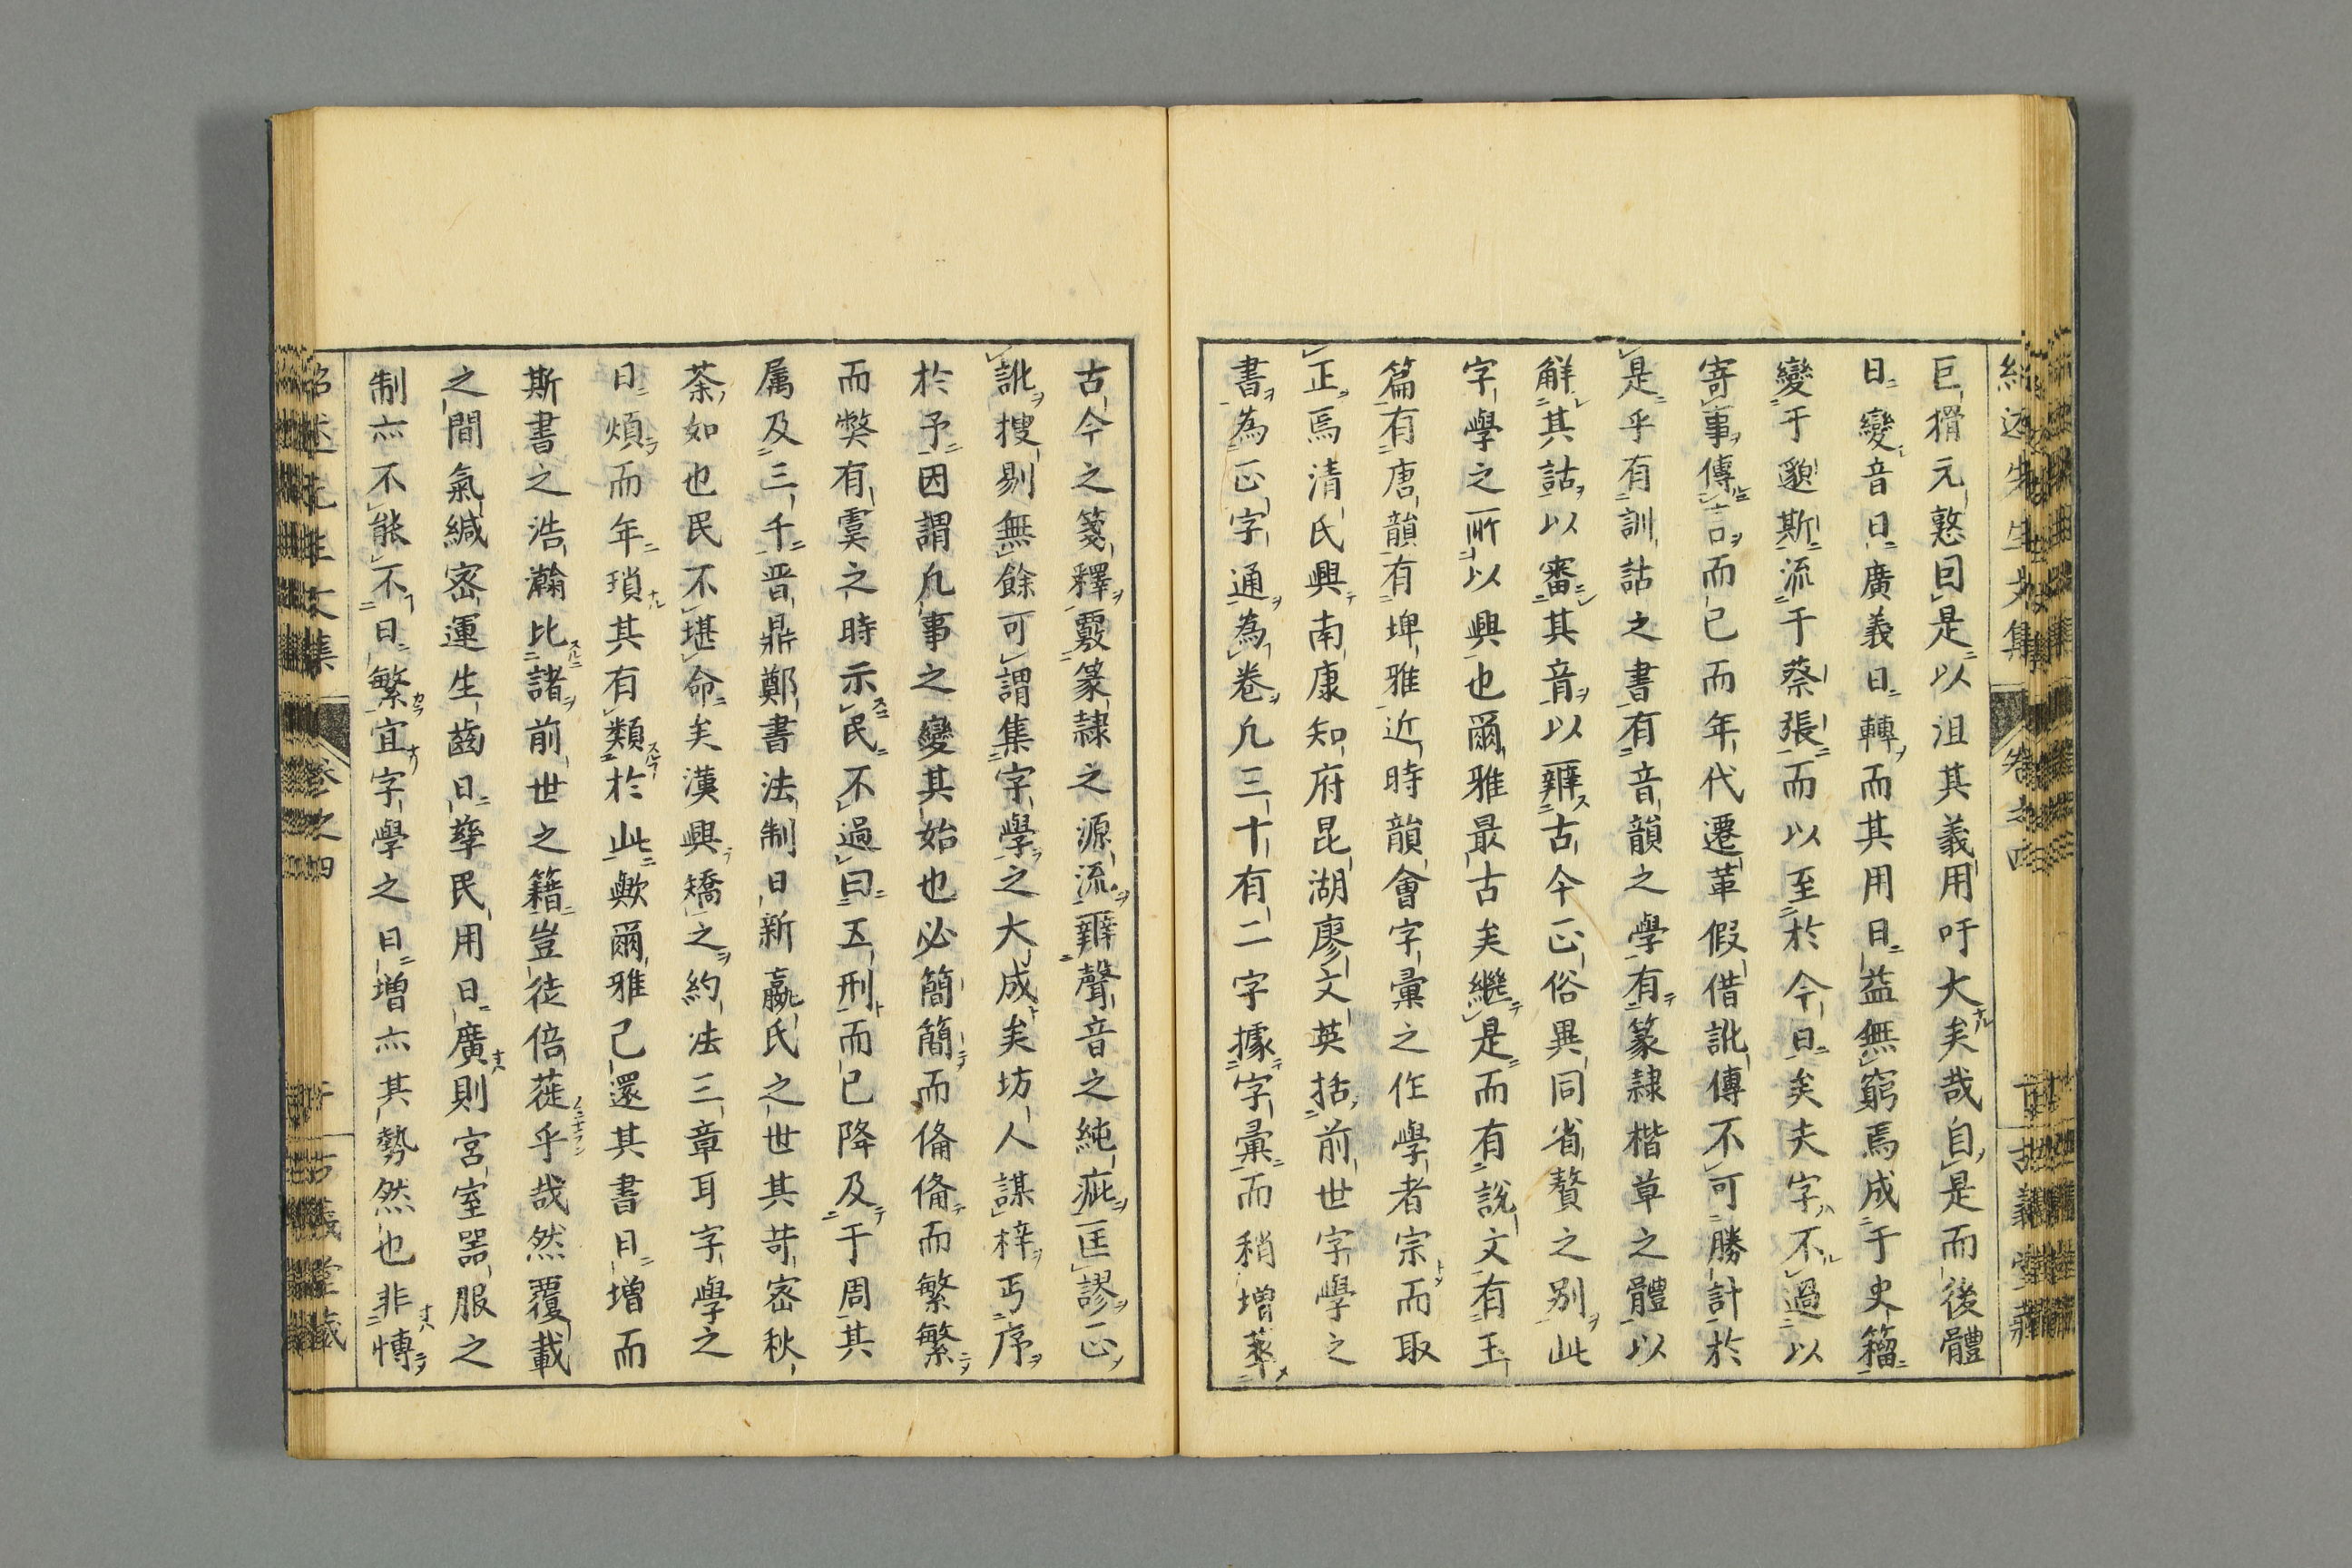 巨猾元憝曰是以沮其義用吁大矣哉自是而後體
日變音日廣義日轉而其用日益無窮焉成于史籀
變于邈斯流于蔡張而以至於今日矣夫字不過以
寄事傳言而已而年代遷革假借訛傳不可勝計於
是乎有訓詁之書有音韻之學有篆隷楷草之體以
觧其詁以審其音以辨古今正俗異同省贅之別此
字學之所以興也爾雅最古矣繼是而有說文有玉
篇有唐韻有埤雅近時韻會字彙之作學者宗而取
正焉清氏興南康知府昆湖廖文英括前世字學之
書為正字通為卷凢三十有二字據字彙而稍增萃
古今之箋釋覈篆隷之源流辨聲音之純疵匡謬正
訛搜剔無餘可謂集字學之大成矣坊人謀梓丐序
於予因謂凢事之變其始也必簡簡而偹偹而繁繁
而獘有虞之時示民不過曰五刑而已降及于周其
属及三千晋鼎鄭書法制日新嬴氏之世其苛宻秋
荼如也民不堪命矣漢興矯之約法三章耳字學之
日煩而年瑣其有類於此歟爾雅已還其書日增而
斯書之浩瀚比諸前世之籍豈徒倍蓰乎哉然覆載
之間氣緘宻運生齒日孳民用日廣則宮室噐服之
制亦不能不日繁宜字學之日增亦其勢然也非愽
紹述先生文集
卷之四
古義堂藏